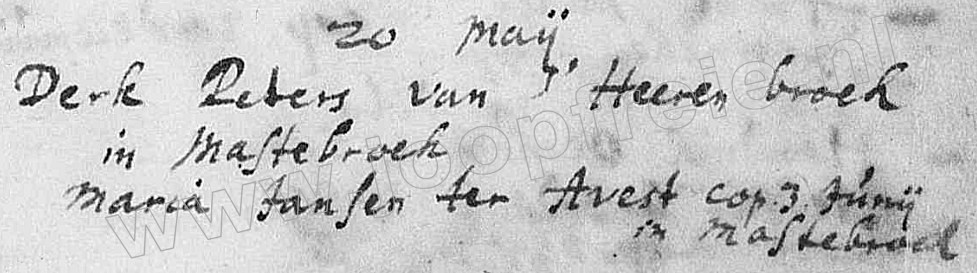 20 Maij
Derk Peters van 's Heeren broek
in Mastebroek
Maria Jansen ter Avest cop. 3. Junij
in Mastebroek
www.loopfreie.nl